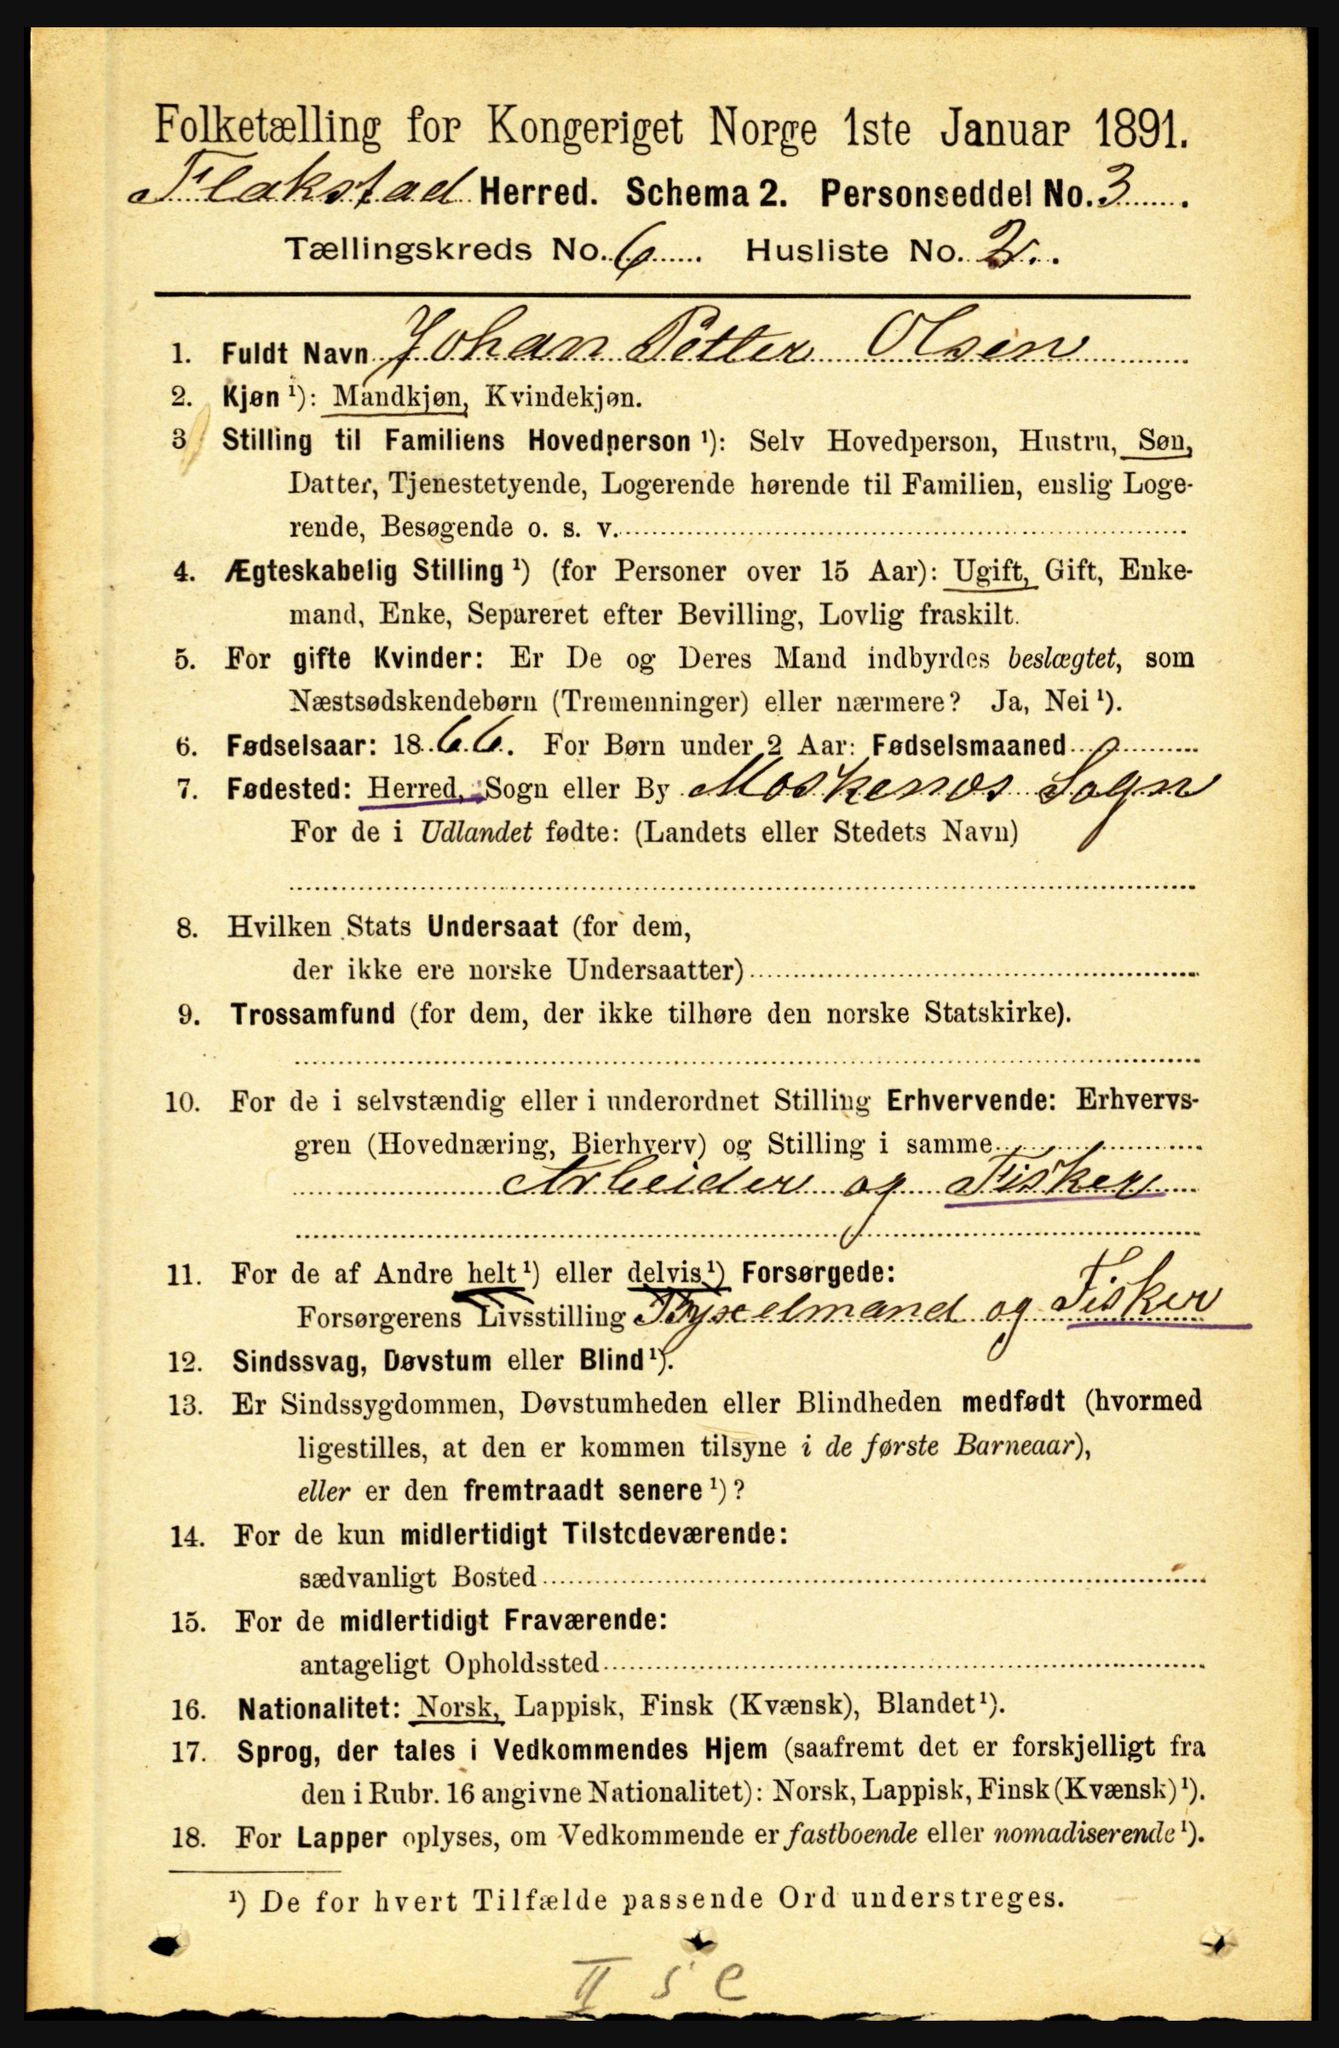 Folketælling for Kongeriget Norge 1ste Januar 1891.
Flakstad Herred. Schema 2. Personseddel No. 3.
Tællingskreds No. 6. Husliste No. 2.
1. Fuldt Navn Johan Petter Olsen
2. Kjøn ¹): Mandkjøn, Kvindekjøn.
3 Stilling til Familiens Hovedperson ¹): Selv Hovedperson, Hustru, Søn,
Datter, Tjenestetyende, Logerende hørende til Familien, enslig Loge-
rende, Besøgende o. s. v.
4. Ægteskabelig Stilling ¹) (for Personer over 15 Aar): Ugift, Gift, Enke-
mand, Enke, Separeret efter Bevilling, Lovlig fraskilt.
5. For gifte Kvinder: Er De og Deres Mand indbyrdes beslægtet, som
Næstsødskendebørn (Tremenninger) eller nærmere? Ja, Nei ¹).
6. Fødselsaar: 1866. For Børn under 2 Aar: Fødselsmaaned
7. Fødested: Herred, Sogn eller By Moskenes Sogn
For de i Udlandet fødte: (Landets eller Stedets Navn)
8. Hvilken Stats Undersaat (for dem,
der ikke ere norske Undersaatter)
9. Trossamfund (for dem, der ikke tilhøre den norske Statskirke).
10. For de i selvstændig eller i underordnet Stilling Erhvervende: Erhvervs-
gren (Hovednæring, Bierhverv) og Stilling i samme
Arbeider og Fisker
11. For de af Andre helt ¹) eller delvis ¹) Forsørgede:
Forsørgerens Livsstilling Byxelmand og Fisker
12. Sindssvag, Døvstum eller Blind ¹).
13. Er Sindssygdommen, Døvstumheden eller Blindheden medfødt (hvormed
ligestilles, at den er kommen tilsyne i de første Barneaar),
eller er den fremtraadt senere ¹)?
14. For de kun midlertidigt Tilstedeværende:
sædvanligt Bosted
15. For de midlertidigt Fraværende:
antageligt Opholdssted
16. Nationalitet: Norsk, Lappisk, Finsk (Kvænsk), Blandet ¹).
17. Sprog, der tales i Vedkommendes Hjem (saafremt det er forskjelligt fra
den i Rubr. 16 angivne Nationalitet): Norsk, Lappisk, Finsk (Kvænsk) ¹).
18. For Lapper oplyses, om Vedkommende er fastboende eller nomadiserende ¹).
¹) De for hvert Tilfælde passende Ord understreges.
II 5 e